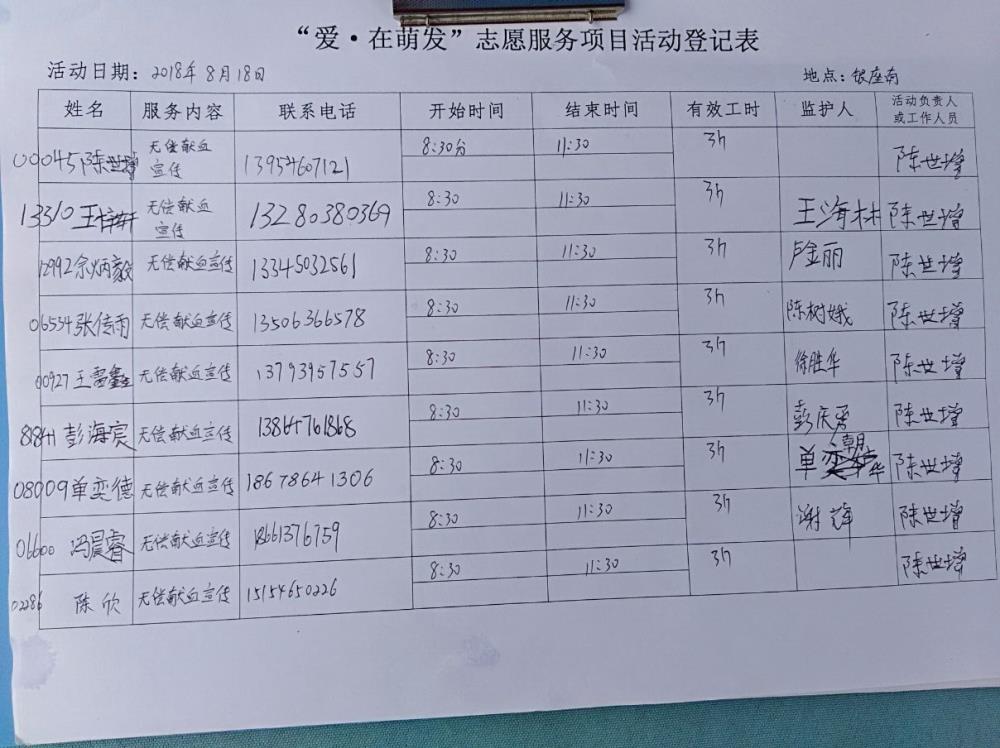 “爱·在萌发”志愿服务项目活动登记表
活动日期：2018年8月18日 地点：银座南
姓名 服务内容 联系电话 开始时间 结束时间 有效工时 监护人 活动负责人或工作人员
00045 陈世增 无偿献血宣传 13954607121 8:30分 11:30 3h 陈世增
13310 王梓轩 无偿献血宣传 13280380369 8:30 11:30 3h 王海林 陈世增
12992 余炳毅 无偿献血宣传 13345032561 8:30 11:30 3h 卢金丽 陈世增
06534 张传雨 无偿献血宣传 13506366578 8:30 11:30 3h 陈树娥 陈世增
00927 王 无偿献血宣传 13793957557 8:30 11:30 3h 徐胜华 陈世增
彭海宾 无偿献血宣传 13864761868 8:30 11:30 3h 彭庆勇 陈世增
08009 单奕德 无偿献血宣传 18678641306 8:30 11:30 3h 单朝华 陈世增
06600 冯晨睿 无偿献血宣传 18661376759 8:30 11:30 3h 谢 陈世增
02286 陈欣 无偿献血宣传 15154650226 8:30 11:30 3h 陈世增